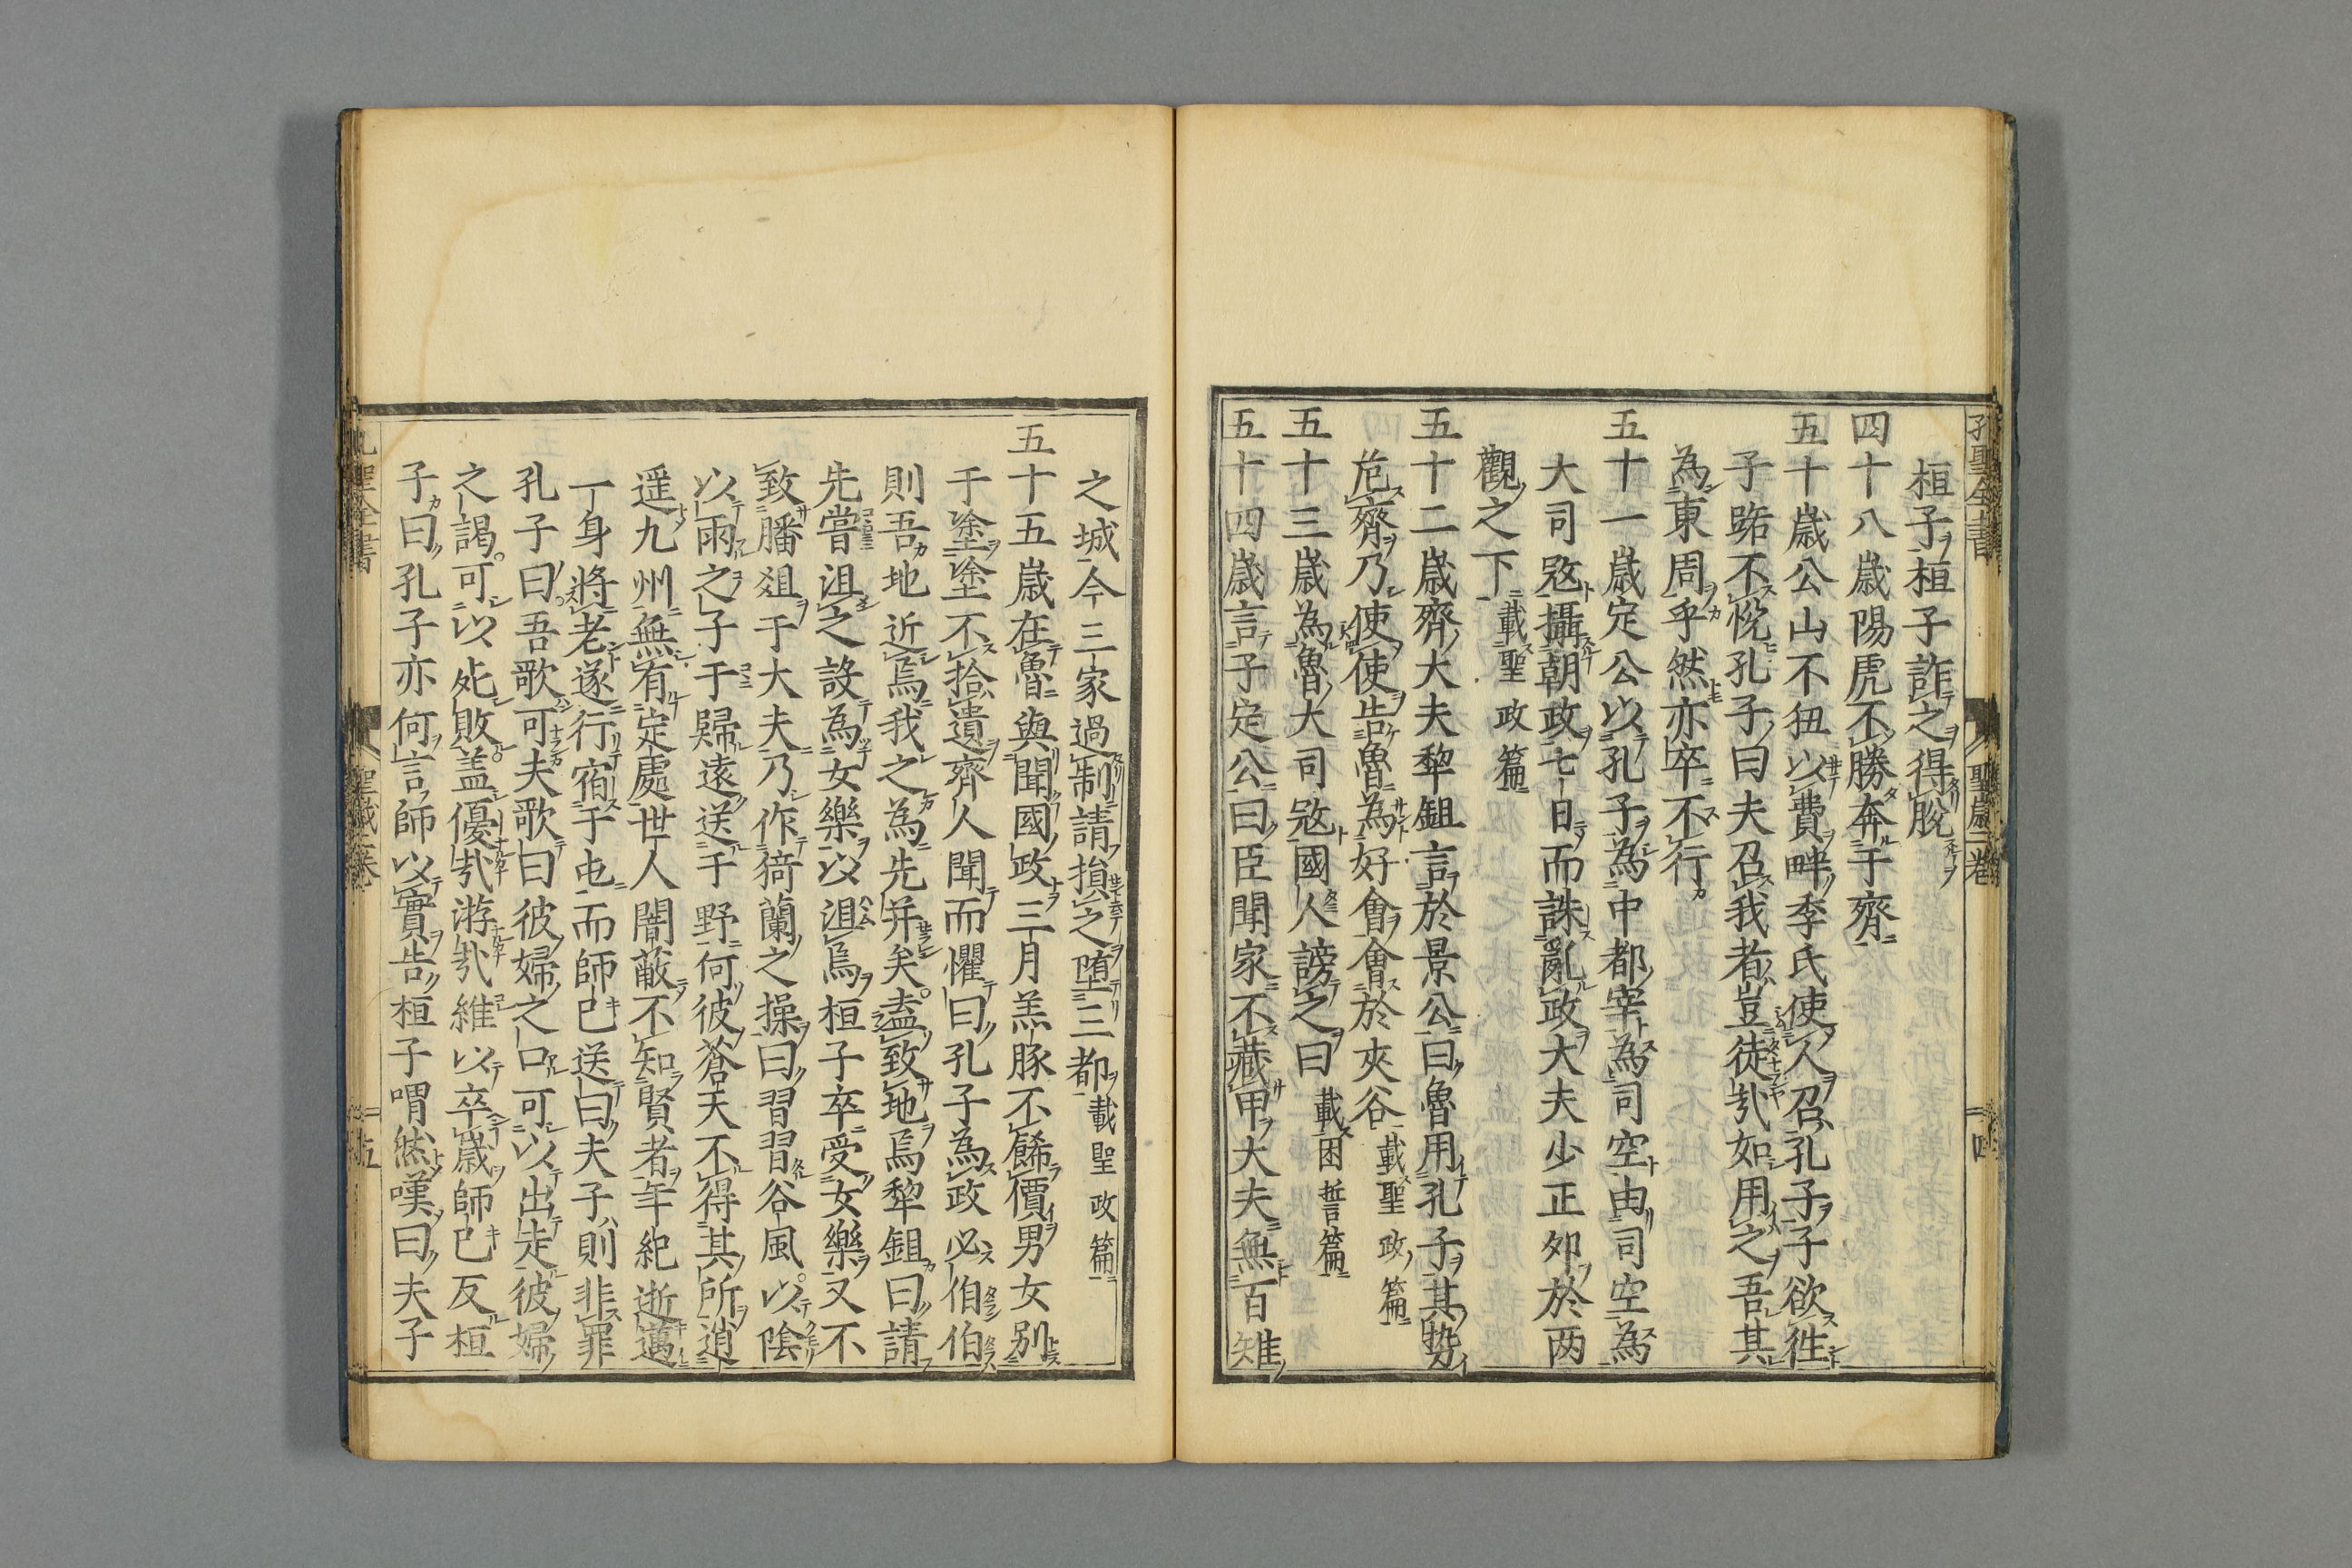 孔聖全書
聖歳二巻
四
桓子桓子詐之得脫
四十八歲陽虎不勝奔于齊
五十歲公山不狃以費畔季氏使人召孔子子欲徃
子路不悅孔子曰夫召我者豈徒㢤如用之吾其
為東周乎然亦卒不行
五十一歲定公以孔子為中都宰為司空由司空為
大司宼攝朝政七日而誅亂政大夫少正夘於两
觀之下載聖政篇
五十二歲齊大夫犂鉏言於景公曰魯用孔子其勢
危齊乃使使告魯為好會會於夾谷載聖政篇
五十三歲為魯大司宼國人謗之曰載困誓篇
五十四歲言子定公曰臣聞家不藏甲大夫無百雉
之城今三家過制請損之堕三都載聖政篇
五十五歲在魯與聞國政三月羔豚不餙價男女别
于塗塗不拾遺齊人聞而懼曰孔子為政必伯伯
則吾地近焉我之為先并矣盍致地焉犂鉏曰請
先嘗沮之設為女樂以沮焉桓子卒受女樂又不
致膰俎于大夫乃作猗蘭之操曰習習谷風以陰
以雨之子于歸遠送于野何彼蒼天不得其所逍
遥九州無有定處世人闇蔽不知賢者年紀逝邁
一身將老遂行宿于屯而師已送曰夫子則非罪
孔子曰吾歌可夫歌曰彼婦之口可以出走彼婦
之謁可以死敗盖優㢤游㢤維以卒歲師已反桓
子曰孔子亦何言師以實告桓子喟然嘆曰夫子
孔聖全書
聖歳二巻
五